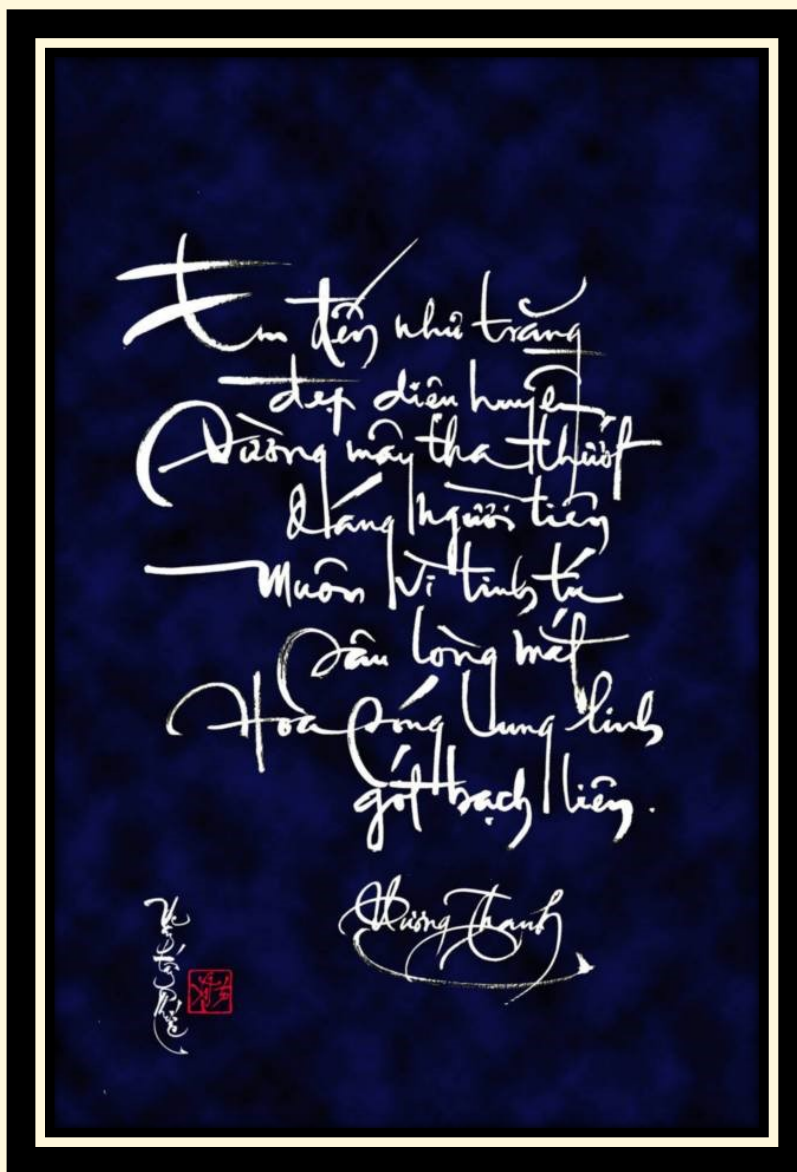 Em đến như trăng
đẹp diệu huyền
Vường mây tha thướt
Dáng người tiên
Muôn vì tinh tú
sâu lòng mắt
Hoa sóng lung linh
gót bạch liên.
Hương Thanh